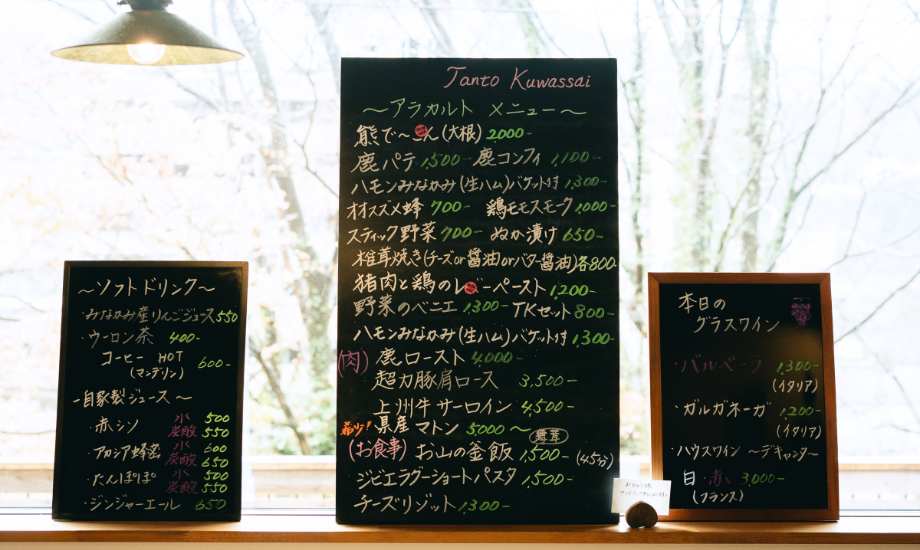 ~ソフトドリンク~
・みなかみ産りんごジュース 550
・ウーロン茶 400-
コーヒー HOT
(マンデリン) 600-
-自家製ジュース~
・赤シソ 水 500
炭酸 550
・アカシア蜂蜜 水 600
炭酸 650
・たんぽぽ 水 500
炭酸 550
・ジンジャーエール 650
Tanto Kuwassai
~アラカルト メニュー~
熊で~こん(大根) 2,000-
鹿パテ 1,500- 鹿コンフィ 1,100-
ハモンみなかみ(生ハム)バケット付 1,300-
オオスズメ蜂 700- 鶏モモスモーク 1,000-
スティック野菜 700- ぬか漬け 650-
椎茸焼き(チーズor醤油orバター醤油)各800-
猪肉と鶏のレバーペースト 1,200-
野菜のベニエ 1,300- TKセット 800-
ハモンみなかみ(生ハム)バケット付 1,300-
(肉) 鹿ロースト 4,000-
超力豚肩ロース 3,500-
上州牛サーロイン 4,500-
希少! 県産マトン 5000~
(お食事) お山の釜飯 舞茸 1,500- (45分)
ジビエラグーショートパスタ 1,500-
チーズリゾット 1,300-
本日の
グラスワイン
・バルベーラ 1,300-
(イタリア)
・ガルガネーガ 1,200-
(イタリア)
・ハウスワイン ~デキャンタ~
白・赤 3,000-
(フランス)